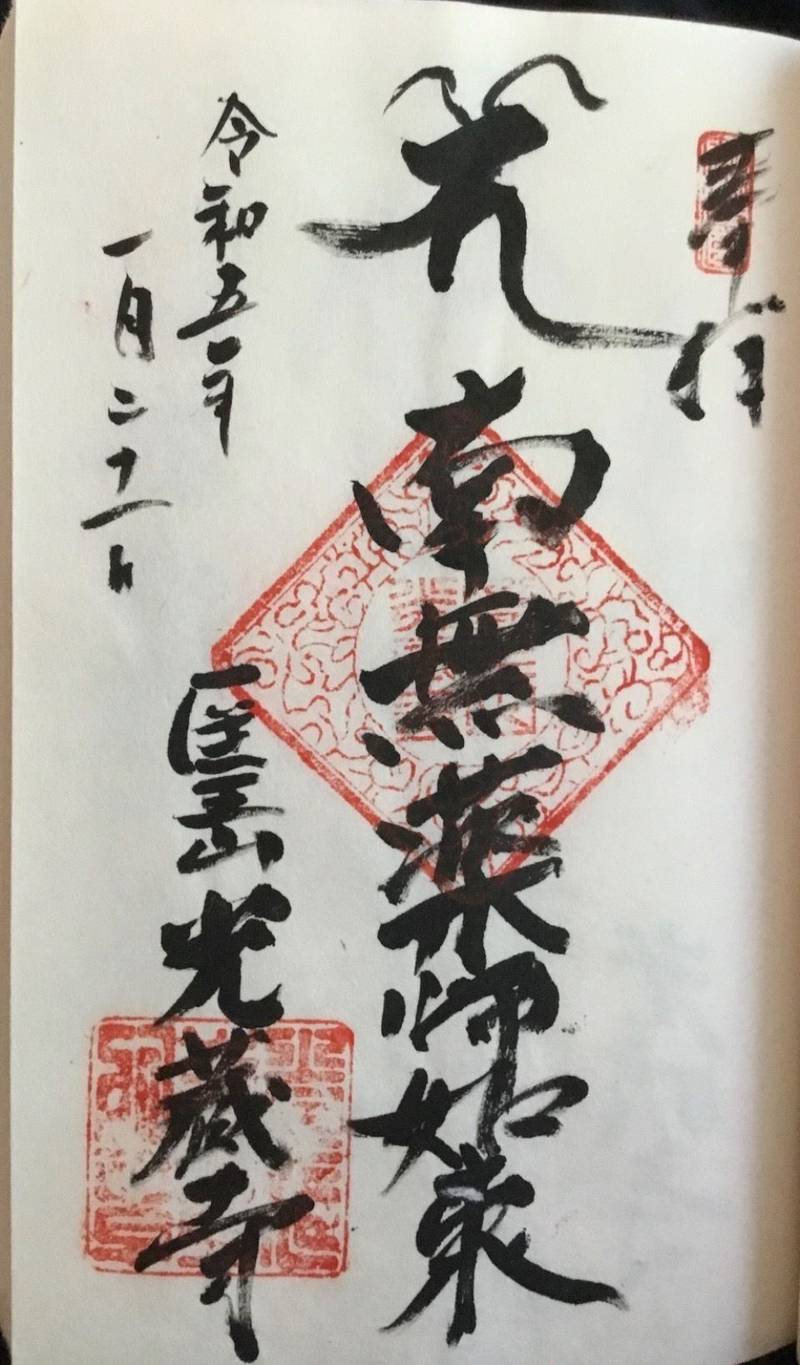 奉拝
笑 南無薬師如来
令和五年
一月二十一日
医王山光蔵寺